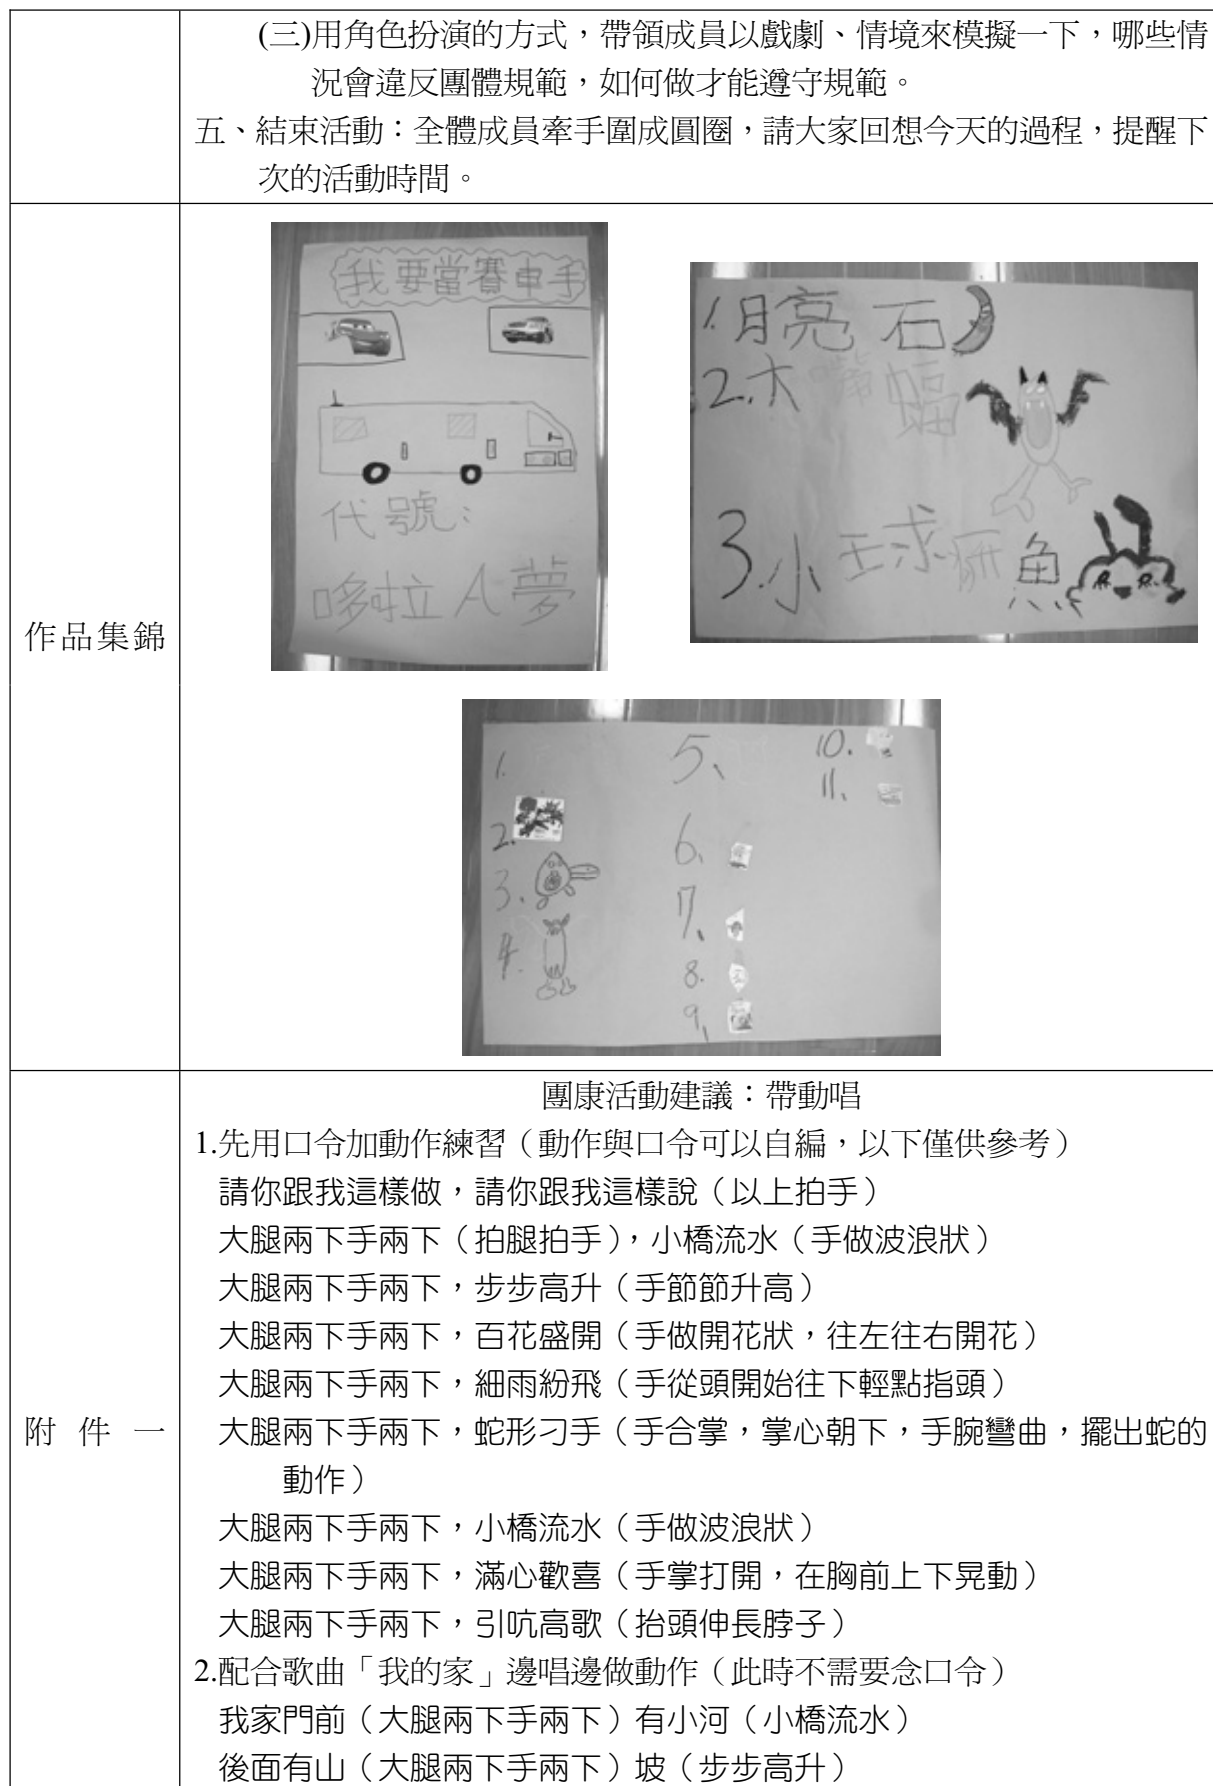 (三)用角色扮演的方式，帶領成員以戲劇、情境來模擬一下，哪些情
況會違反團體規範，如何做才能遵守規範。
五、結束活動：全體成員牽手圍成圓圈，請大家回想今天的過程，提醒下
次的活動時間。
作品集錦
我要當賽車手
代號：
哆啦A夢
1.月亮石
2.大嘴蝠
3.小球魚
1.
2.
3.
4.
5、
6、
7、
8.
9、
10.
11、
附件一
團康活動建議：帶動唱
1.先用口令加動作練習（動作與口令可以自編，以下僅供參考）
請你跟我這樣做，請你跟我這樣說（以上拍手）
大腿兩下手兩下（拍腿拍手），小橋流水（手做波浪狀）
大腿兩下手兩下，步步高升（手節節升高）
大腿兩下手兩下，百花盛開（手做開花狀，往左往右開花）
大腿兩下手兩下，細雨紛飛（手從頭開始往下輕點指頭）
大腿兩下手兩下，蛇形刁手（手合掌，掌心朝下，手腕彎曲，擺出蛇的
動作）
大腿兩下手兩下，小橋流水（手做波浪狀）
大腿兩下手兩下，滿心歡喜（手掌打開，在胸前上下晃動）
大腿兩下手兩下，引吭高歌（抬頭伸長脖子）
2.配合歌曲「我的家」邊唱邊做動作（此時不需要念口令）
我家門前（大腿兩下手兩下）有小河（小橋流水）
後面有山（大腿兩下手兩下）坡（步步高升）